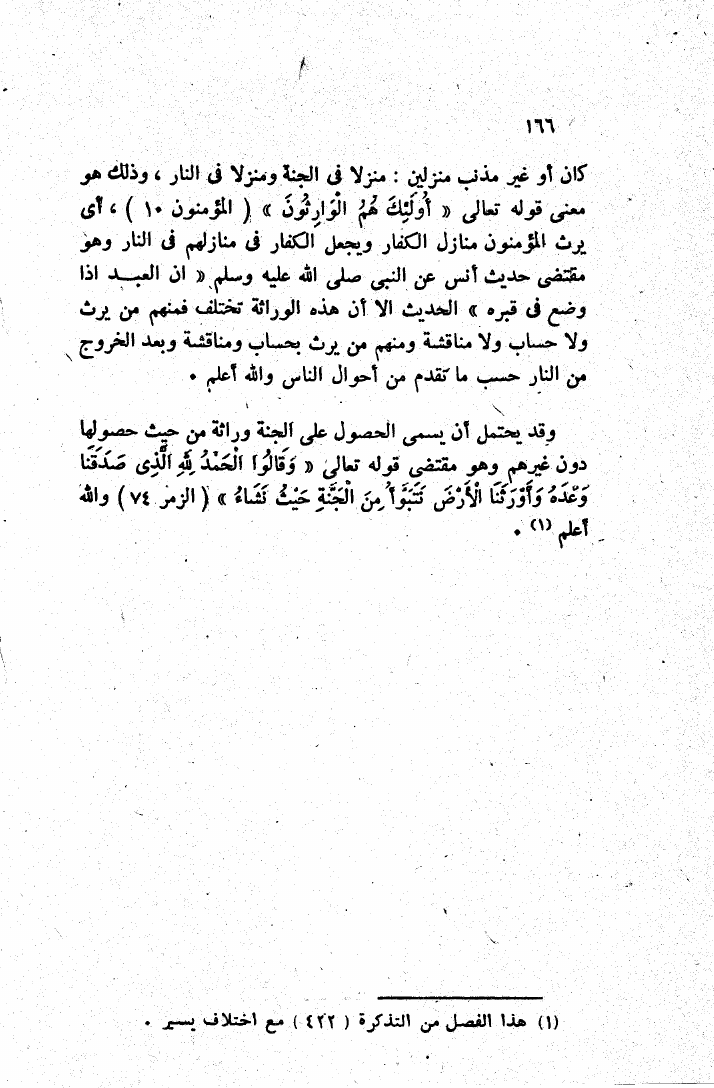 ١٦٦
كان أو غير مذنب منزلين : منزلا فى الجنة ومنزلا فى النار ، وذلك هو
معنى قوله تعالى « أُولَئِكَ هُمُ الْوَارِثُونَ » ( المؤمنون ١٠ ) ، أى
يرث المؤمنون منازل الكفار ويجعل الكفار فى منازلهم فى النار وهو
مقتضى حديث أنس عن النبى صلى الله عليه وسلم « ان العبد اذا
وضع فى قبره » الحديث الا أن هذه الوراثة تختلف فمنهم من يرث
ولا حساب ولا مناقشة ومنهم من يرث بحساب ومناقشة وبعد الخروج
من النار حسب ما تقدم من أحوال الناس والله أعلم .
وقد يحتمل أن يسمى الحصول على الجنة وراثة من حيث حصولها
دون غيرهم وهو مقتضى قوله تعالى « وَقَالُوا الْحَمْدُ لِلَّهِ الَّذِى صَدَقَنَا
وَعْدَهُ وَأَوْرَثَنَا الْأَرْضَ نَتَبَوَّأُ مِنَ الْجَنَّةِ حَيْثُ نَشَاءُ » ( الزمر ٧٤ ) والله
أعلم (١) .
(١) هذا الفصل من التذكرة ( ٤٢٢ ) مع اختلاف يسير .